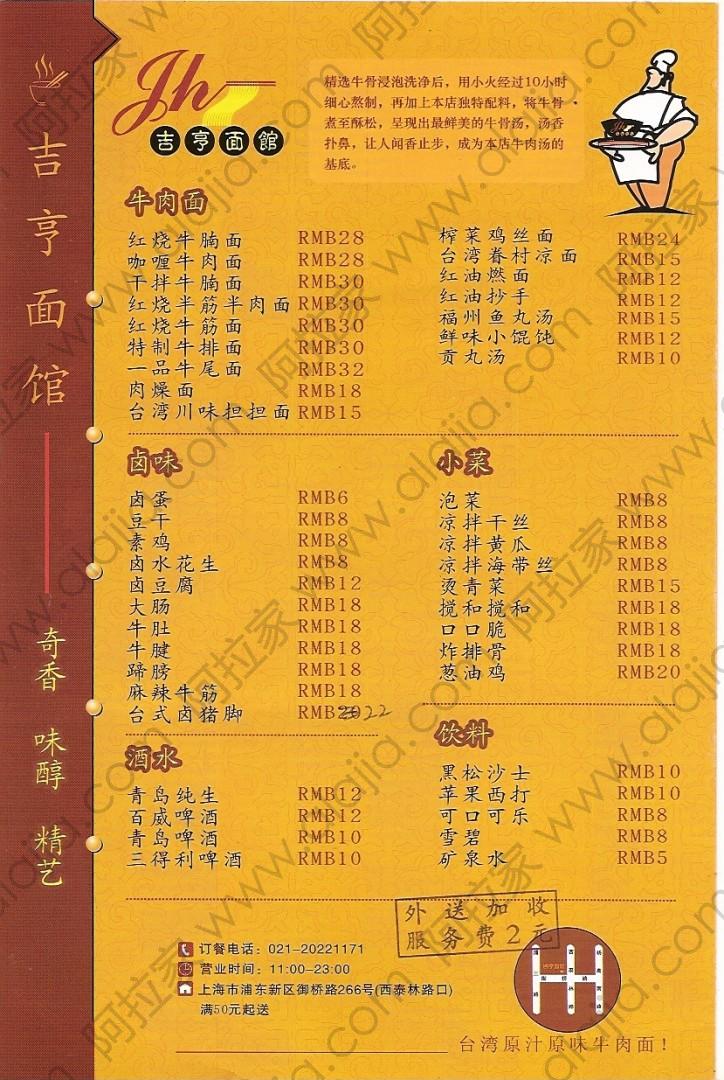 吉亨面馆
奇香 味醇 精艺
Jh
吉亨面館
精选牛骨浸泡洗净后，用小火经过10小时
细心熬制，再加上本店独特配料，将牛骨
煮至酥松，呈现出最鲜美的牛骨汤，汤香
扑鼻，让人闻香止步，成为本店牛肉汤的
基底。
牛肉面
红烧牛腩面 RMB28
咖喱牛肉面 RMB28
干拌牛腩面 RMB30
红烧半筋半肉面 RMB30
红烧牛筋面 RMB30
特制牛排面 RMB30
一品牛尾面 RMB32
肉燥面 RMB18
台湾川味担担面 RMB15
榨菜鸡丝面 RMB24
台湾眷村凉面 RMB15
红油燃面 RMB12
红油抄手 RMB12
福州鱼丸汤 RMB15
鲜味小馄饨 RMB12
贡丸汤 RMB10
卤味
卤蛋 RMB6
豆干 RMB8
素鸡 RMB8
卤水花生 RMB8
卤豆腐 RMB12
大肠 RMB18
牛肚 RMB18
牛腱 RMB18
蹄膀 RMB18
麻辣牛筋 RMB18
台式卤猪脚 RMB 22
小菜
泡菜 RMB8
凉拌干丝 RMB8
凉拌黄瓜 RMB8
凉拌海带丝 RMB8
烫青菜 RMB15
搅和搅和 RMB18
口口脆 RMB18
炸排骨 RMB18
葱油鸡 RMB20
酒水
青岛纯生 RMB12
百威啤酒 RMB12
青岛啤酒 RMB10
三得利啤酒 RMB10
饮料
黑松沙士 RMB10
苹果西打 RMB10
可口可乐 RMB8
雪碧 RMB8
矿泉水 RMB5
外送加收
服务费2元
订餐电话：021-20221171
营业时间：11:00-23:00
上海市浦东新区御桥路266号(西泰林路口)
满50元起送
台湾原汁原味牛肉面！
阿拉家 www.alajia.com